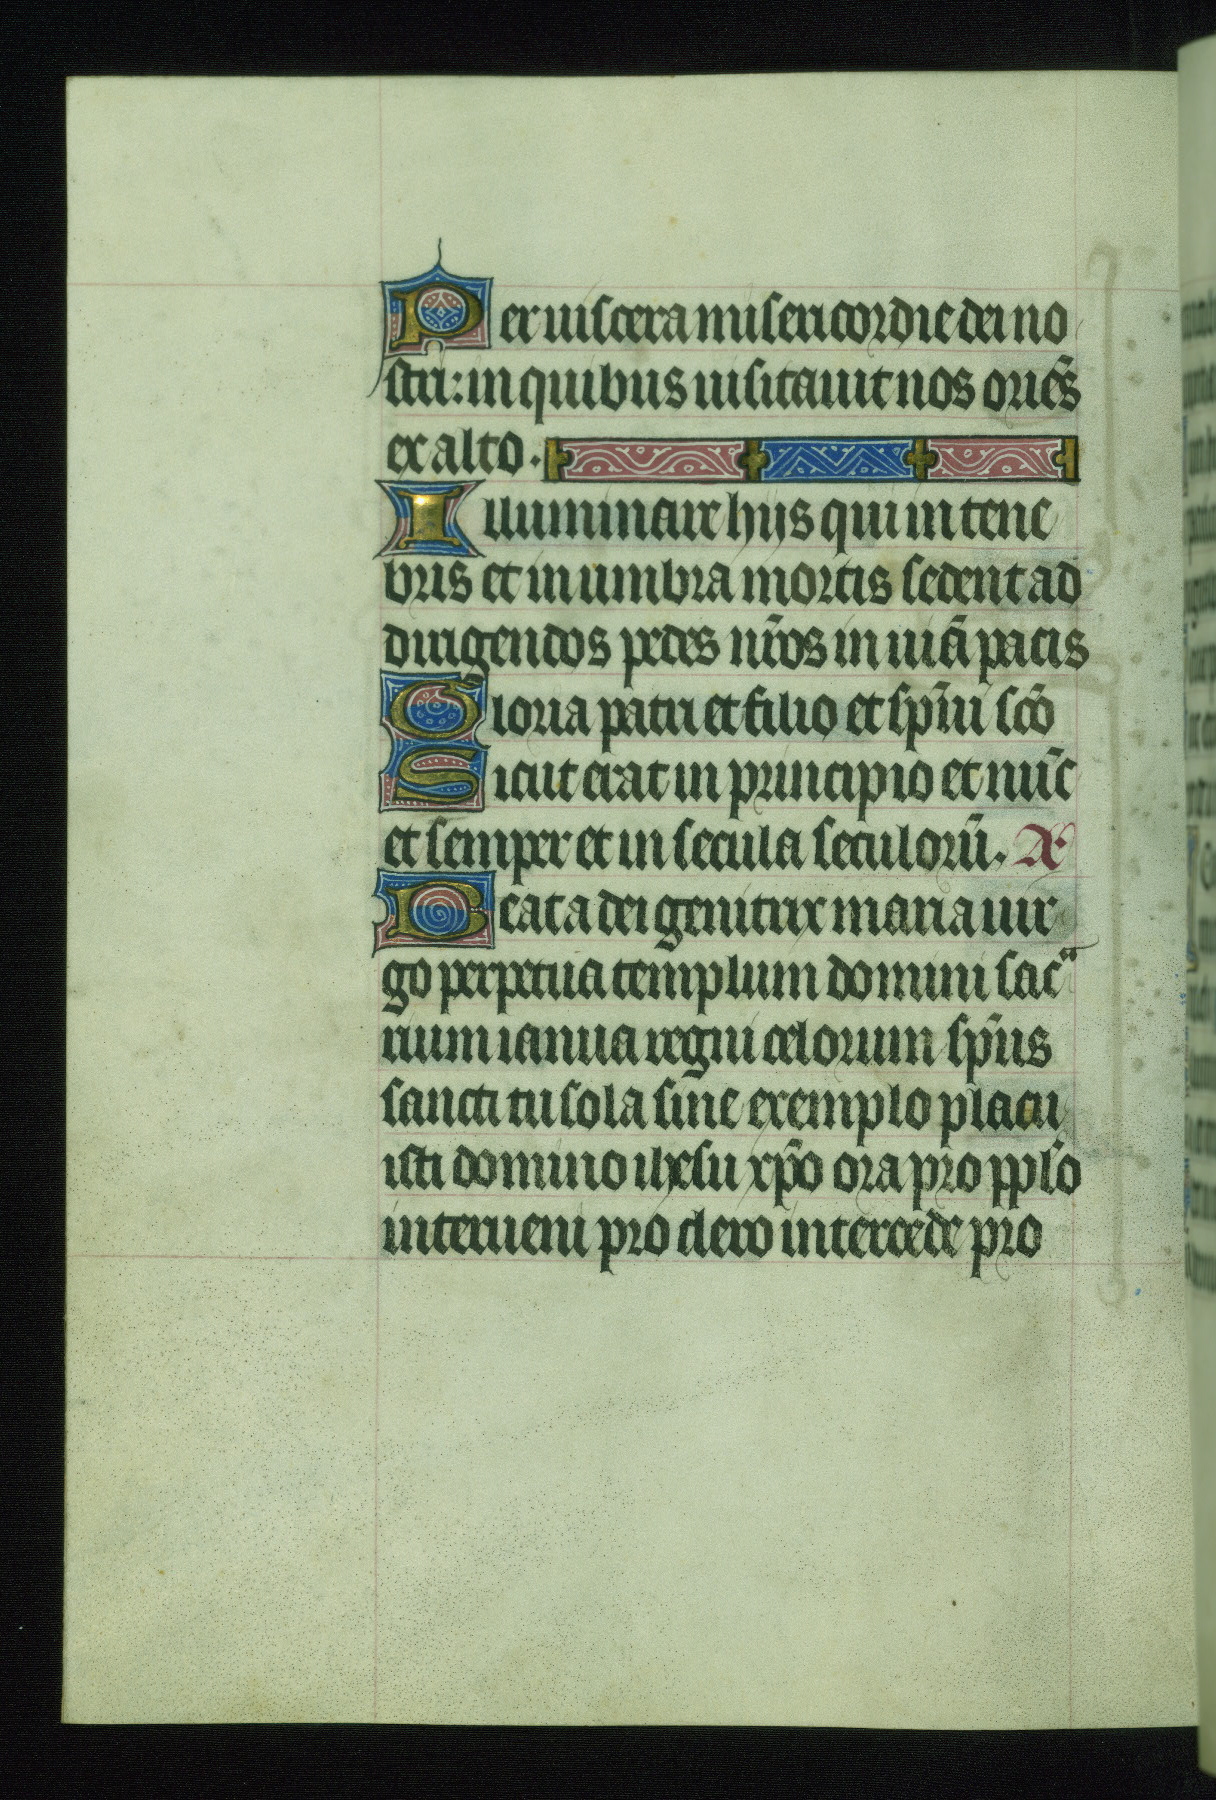 Per uiscera misericordie dei no
stri: in quibus uisitauit nos oriẽs
ex alto.
Illuminare hijs qui in tene
bris et in umbra mortis sedent ad
dirigendos pedes nr̃os in uiã pacis
Gloria patri et filio et spũi scõ
Sicut erat in principio et nũc
et semper et in secula seculorũ. A͠
Beata dei genitrix maria uir
go perpetua templum domini sacᵃ
rium ianua regni celorum spũs
sancti tu sola sine exemplo placu
isti domino ihesu xp̃o ora pro pp̃lo
interueni pro clero intercede pro